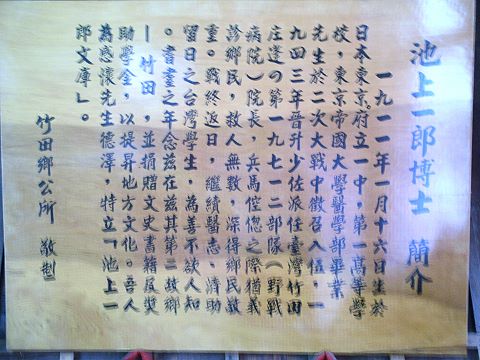 池上一郎博士 簡介
一九一一年一月十六日生於
日本東京府立一中，第一高等學
校，東京帝國大學醫學部畢業
先生於二次大戰中徵召入伍，一
九四三年晉升少佐派任臺灣竹田
庄達の第一九七一二部隊（野戰
病院）院長，兵馬倥偬之際猶義
診鄉民，救人無數，深得鄉民敬
重。戰終返日，繼續醫志，清助
留日之台灣學生，為善不欲人知
。耄耋之年念茲在茲其第二故鄉
—竹田，並捐贈文史書籍及獎
助學金，以提昇地方文化。吾人
為感懷先生德澤，特立「池上一
郎文庫」。
竹田鄉公所 敬製